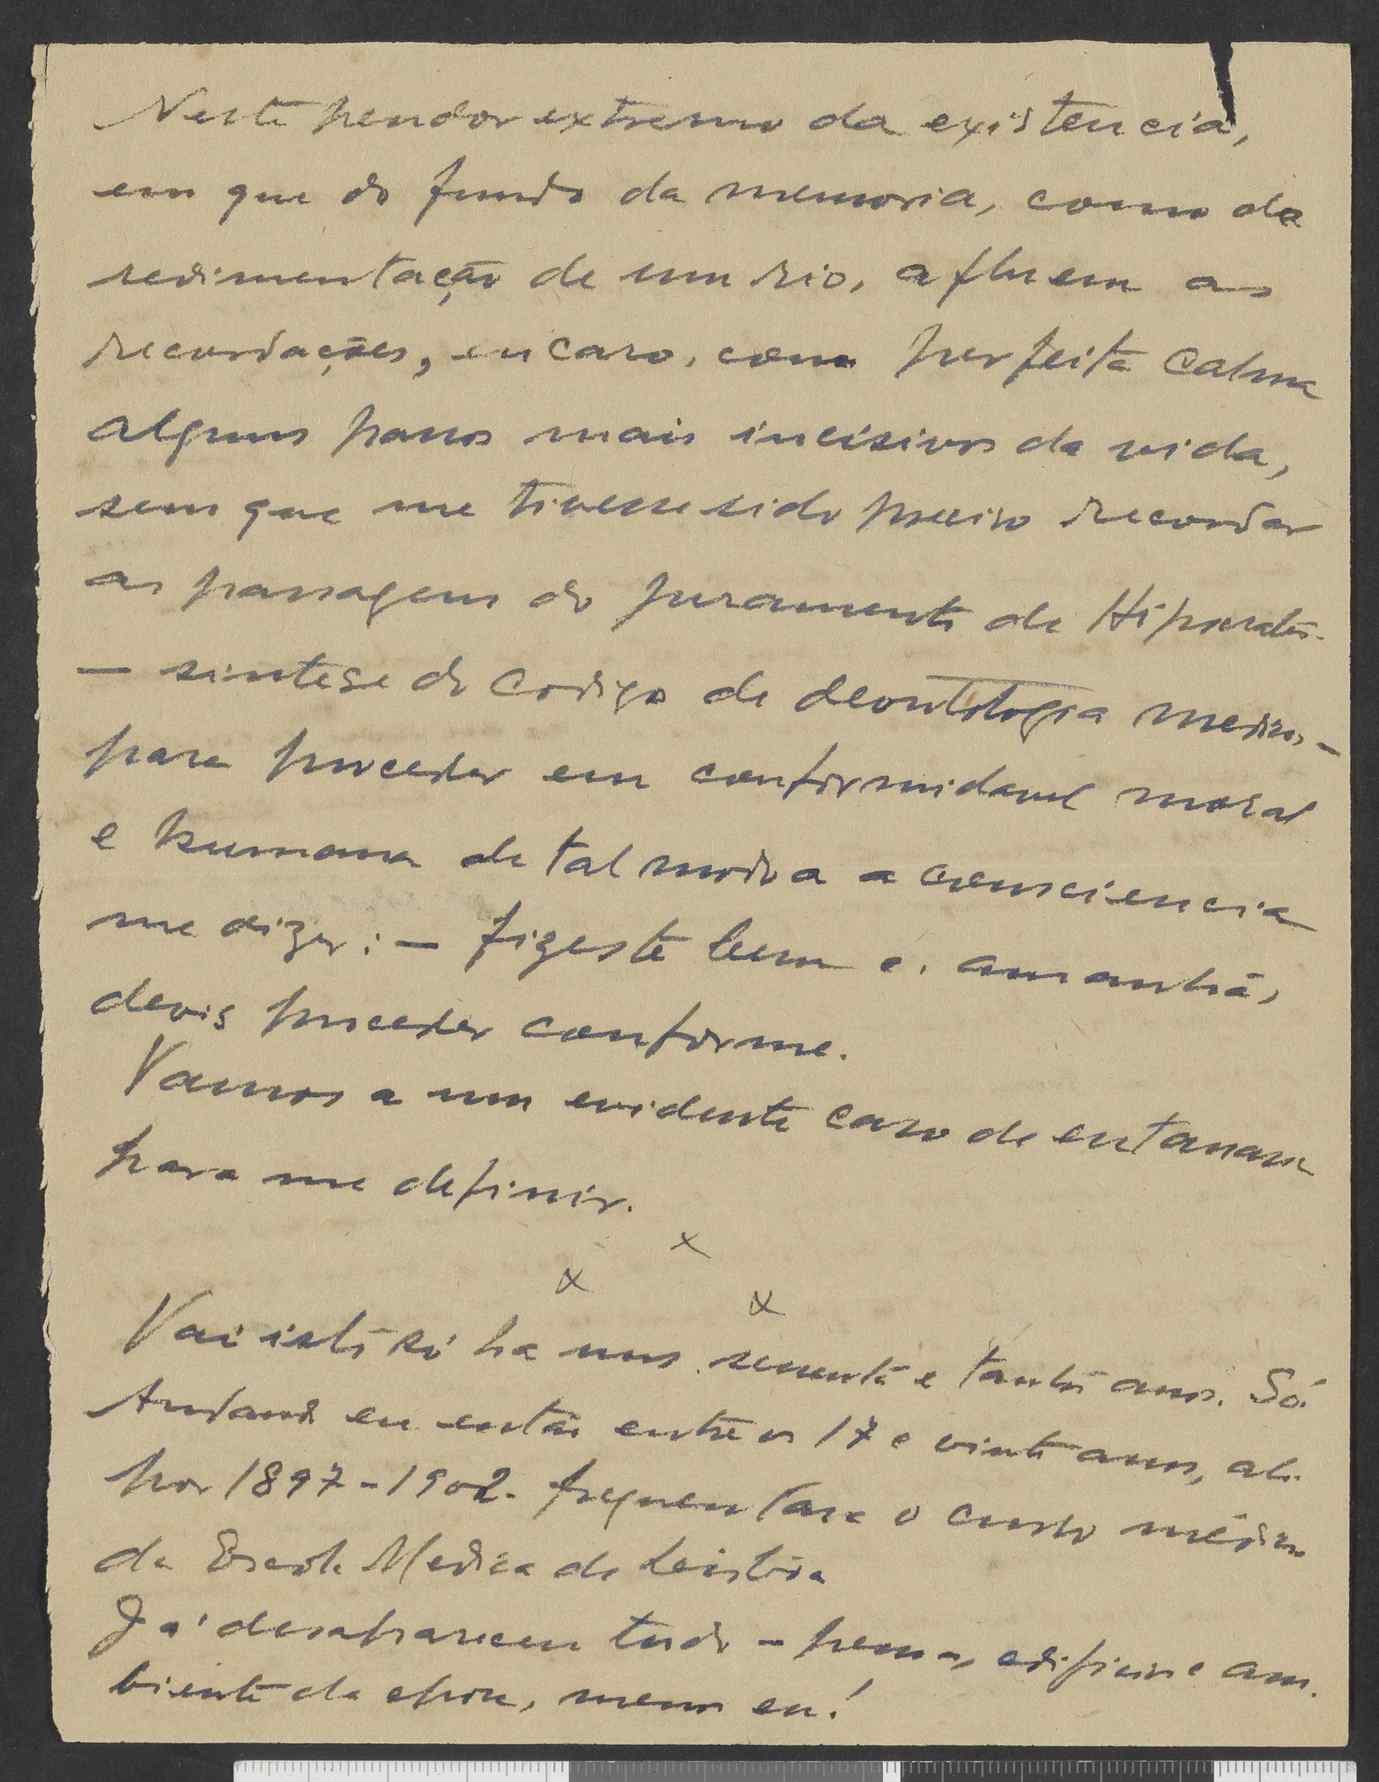 Neste pendor extremo da existencia,
em que do fundo da memoria, como da
sedimentação de um rio, afluem as
recordações, encaro, com perfeita calma
alguns passos mais incisivos da vida,
sem que me tivesse sido preciso recordar
as passagens do juramento de Hipocrates
— sintese do codigo de deontologia medica, —
para proceder em conformidade moral
e humana de tal modo a a consciencia
me dizer: — fizeste bem e, amanhã,
deves proceder conforme.
Vamos a um evidente caso de
para me definir.
x
x x
Vai isto só ha uns sessenta e tantos anos. Só!
Andando eu então entre os 17 e vinte anos, ali
por 1897-1902. frequentava o curso médico
da Escola Medica de Lisboa
Já desapareceu tudo - pessoas, edificio e am-
biente da epoca, menos eu!